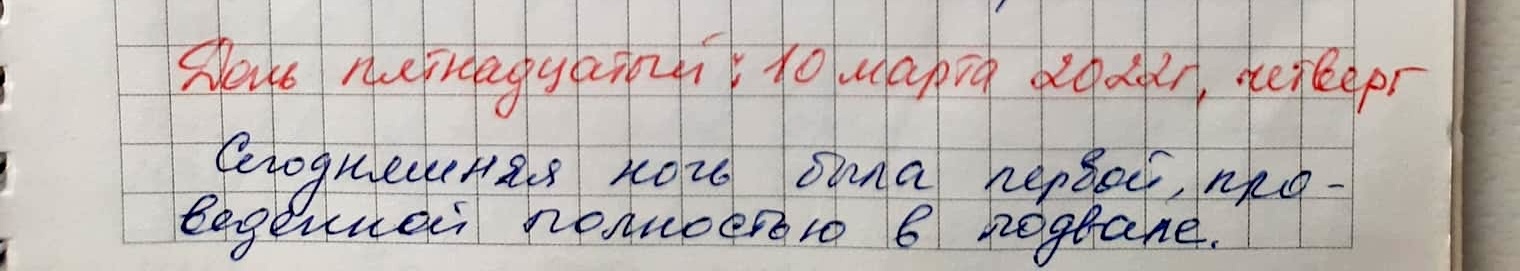 День пятнадцатый: 10 марта 2022г, четверг
Сегодняшняя ночь была первой, про-
веденной полностью в подвале.